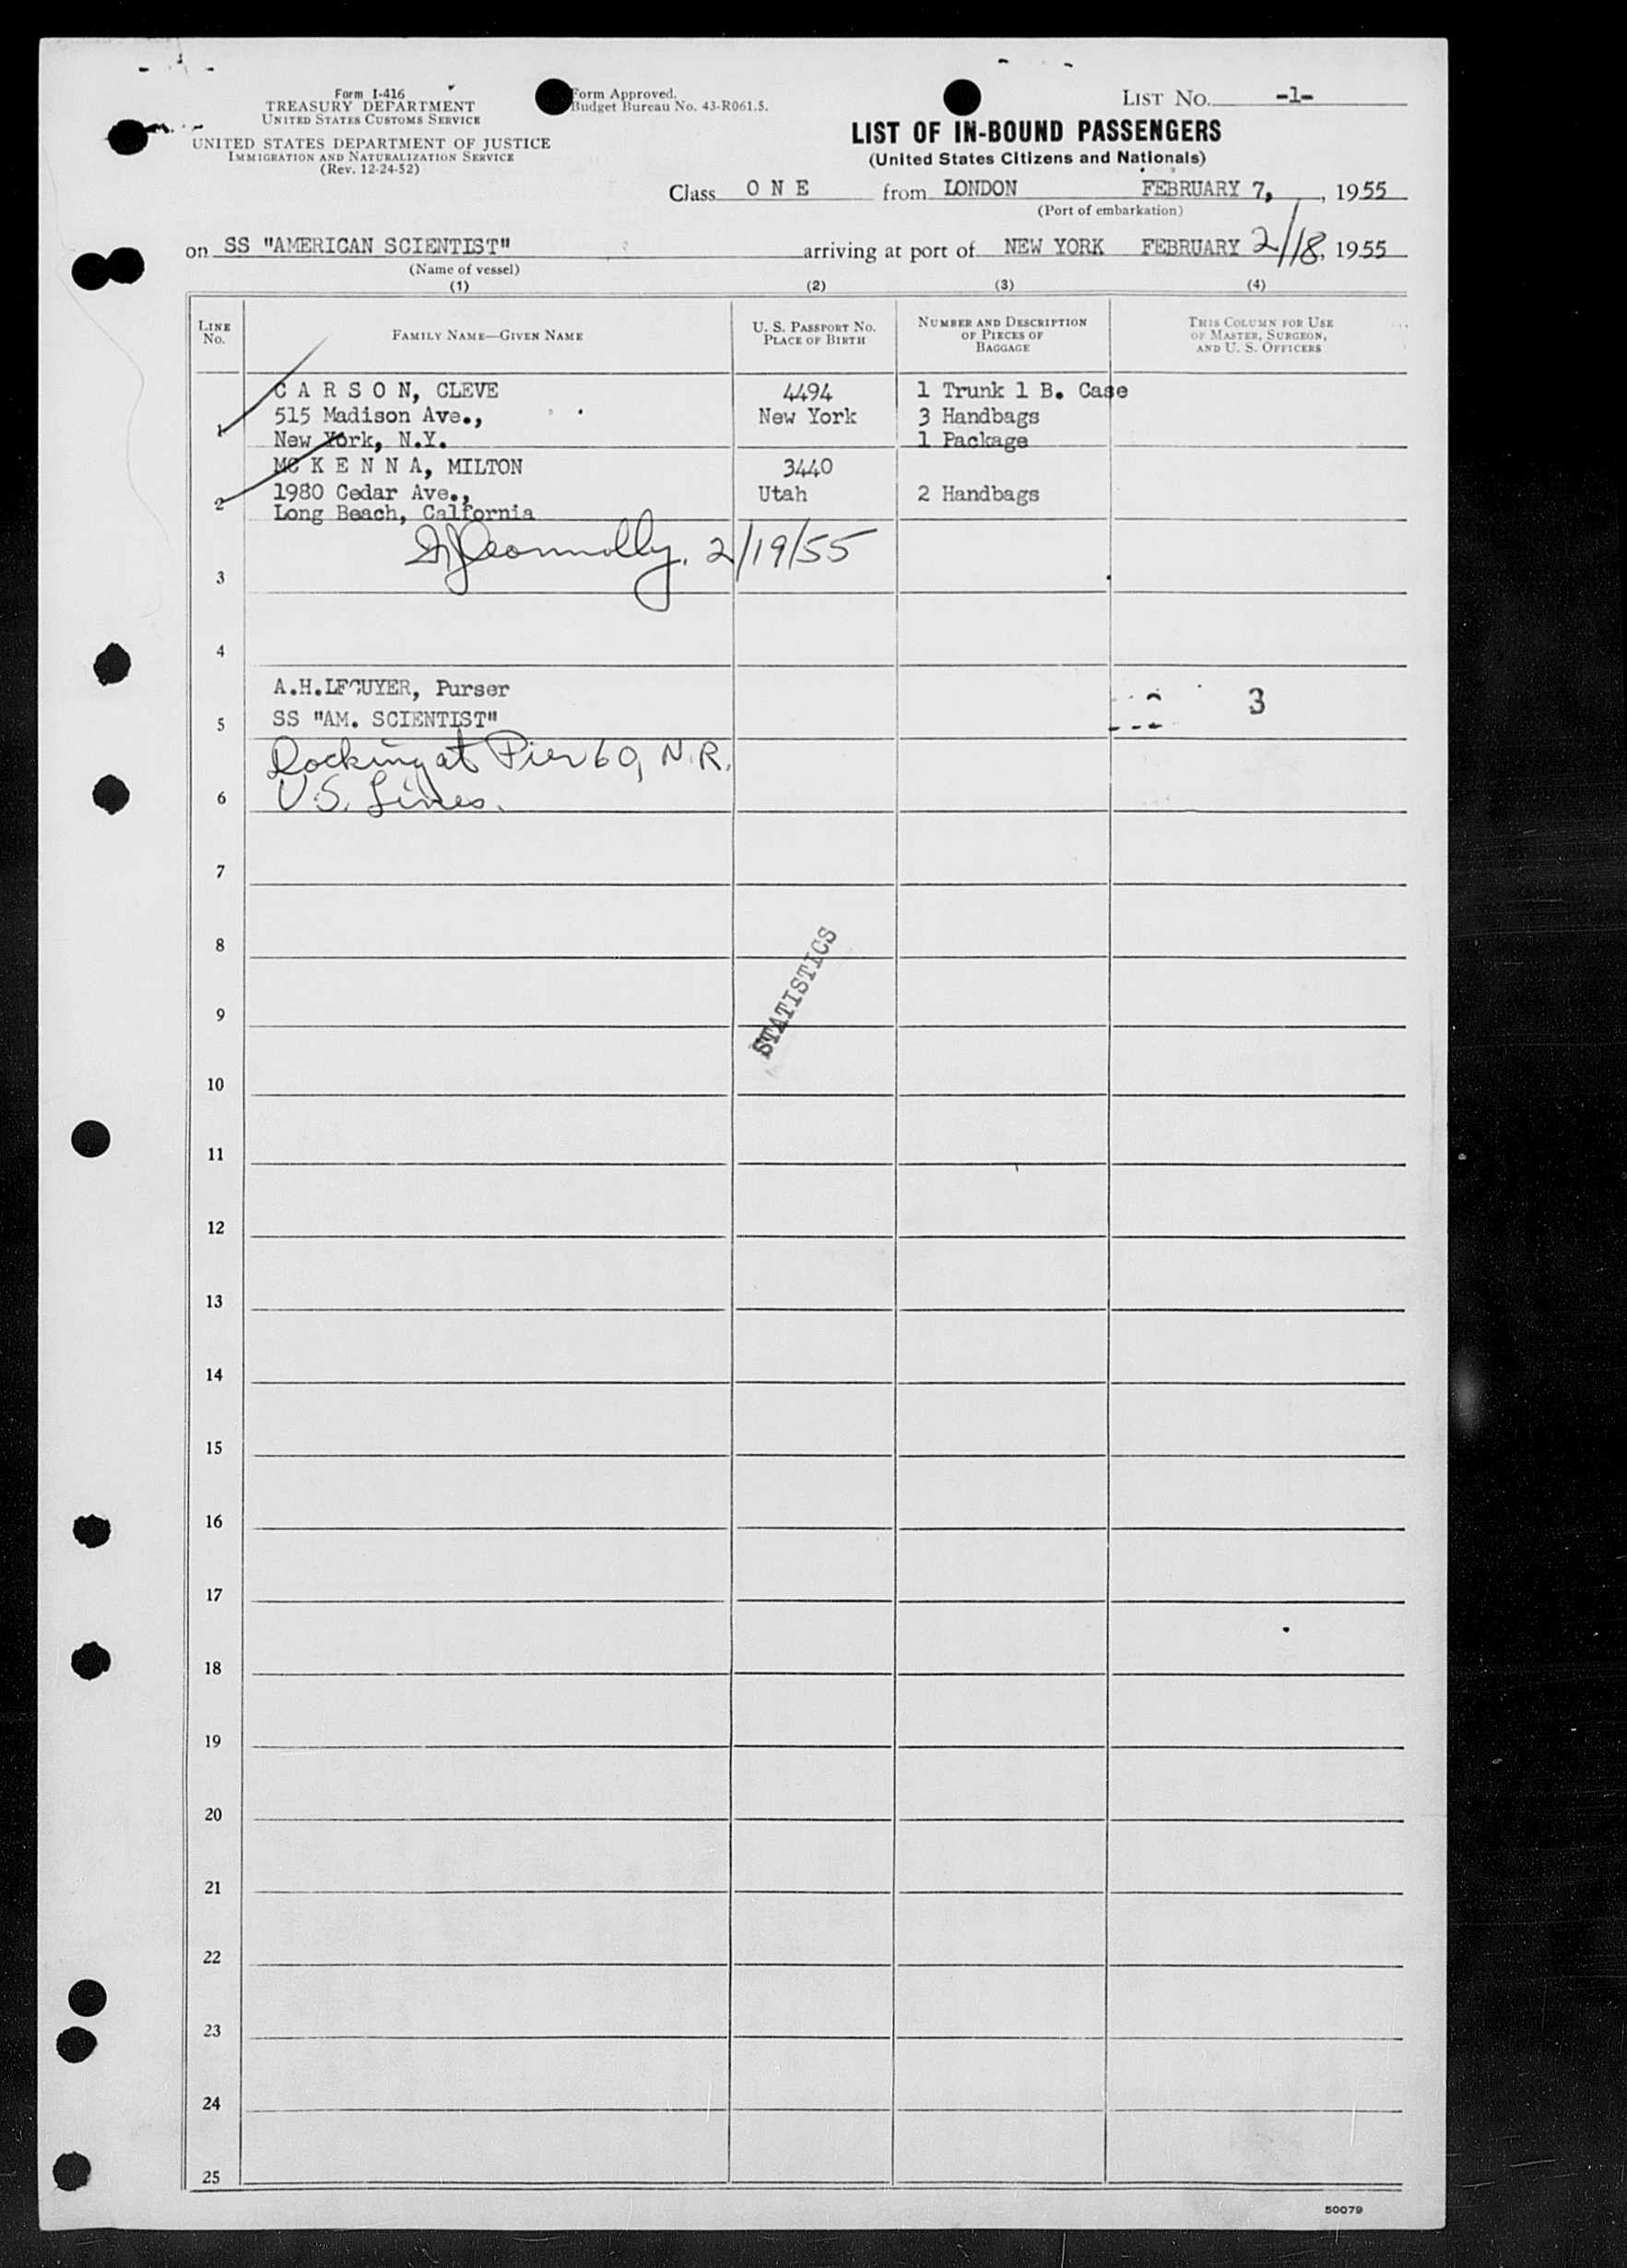 Form I-416
TREASURY DEPARTMENT
UNITED STATES CUSTOMS SERVICE
UNITED STATES DEPARTMENT OF JUSTICE
IMMIGRATION AND NATURALIZATION SERVICE
(Rev. 12-24-52)
Form Approved.
Budget Bureau No. 43-R061.5.
LIST NO. -1-
LIST OF IN-BOUND PASSENGERS
(United States Citizens and Nationals)
Class O N E from LONDON FEBRUARY 7, , 1955
(Port of embarkation)
on SS "AMERICAN SCIENTIST" arriving at port of NEW YORK FEBRUARY 2/18, 1955
(Name of vessel)
(1) (2) (3) (4)
LINE NO. FAMILY NAME—GIVEN NAME U. S. PASSPORT NO. PLACE OF BIRTH NUMBER AND DESCRIPTION OF PIECES OF BAGGAGE THIS COLUMN FOR USE OF MASTER, SURGEON, AND U. S. OFFICERS
C A R S O N, CLEVE 4494 1 Trunk 1 B. Case
515 Madison Ave., New York 3 Handbags
1 New York, N.Y. 1 Package
MC K E N N A, MILTON 3440
2 1980 Cedar Ave., Utah 2 Handbags
Long Beach, Calfornia
Connolly. 2/19/55
3
4
A.H. , Purser 3
5 SS "AM. SCIENTIST"
Docking at Pier 60, N.R.
6 U.S. Lines.
7
8
STATISTICS
9
10
11
12
13
14
15
16
17
18
19
20
21
22
23
24
25
50079